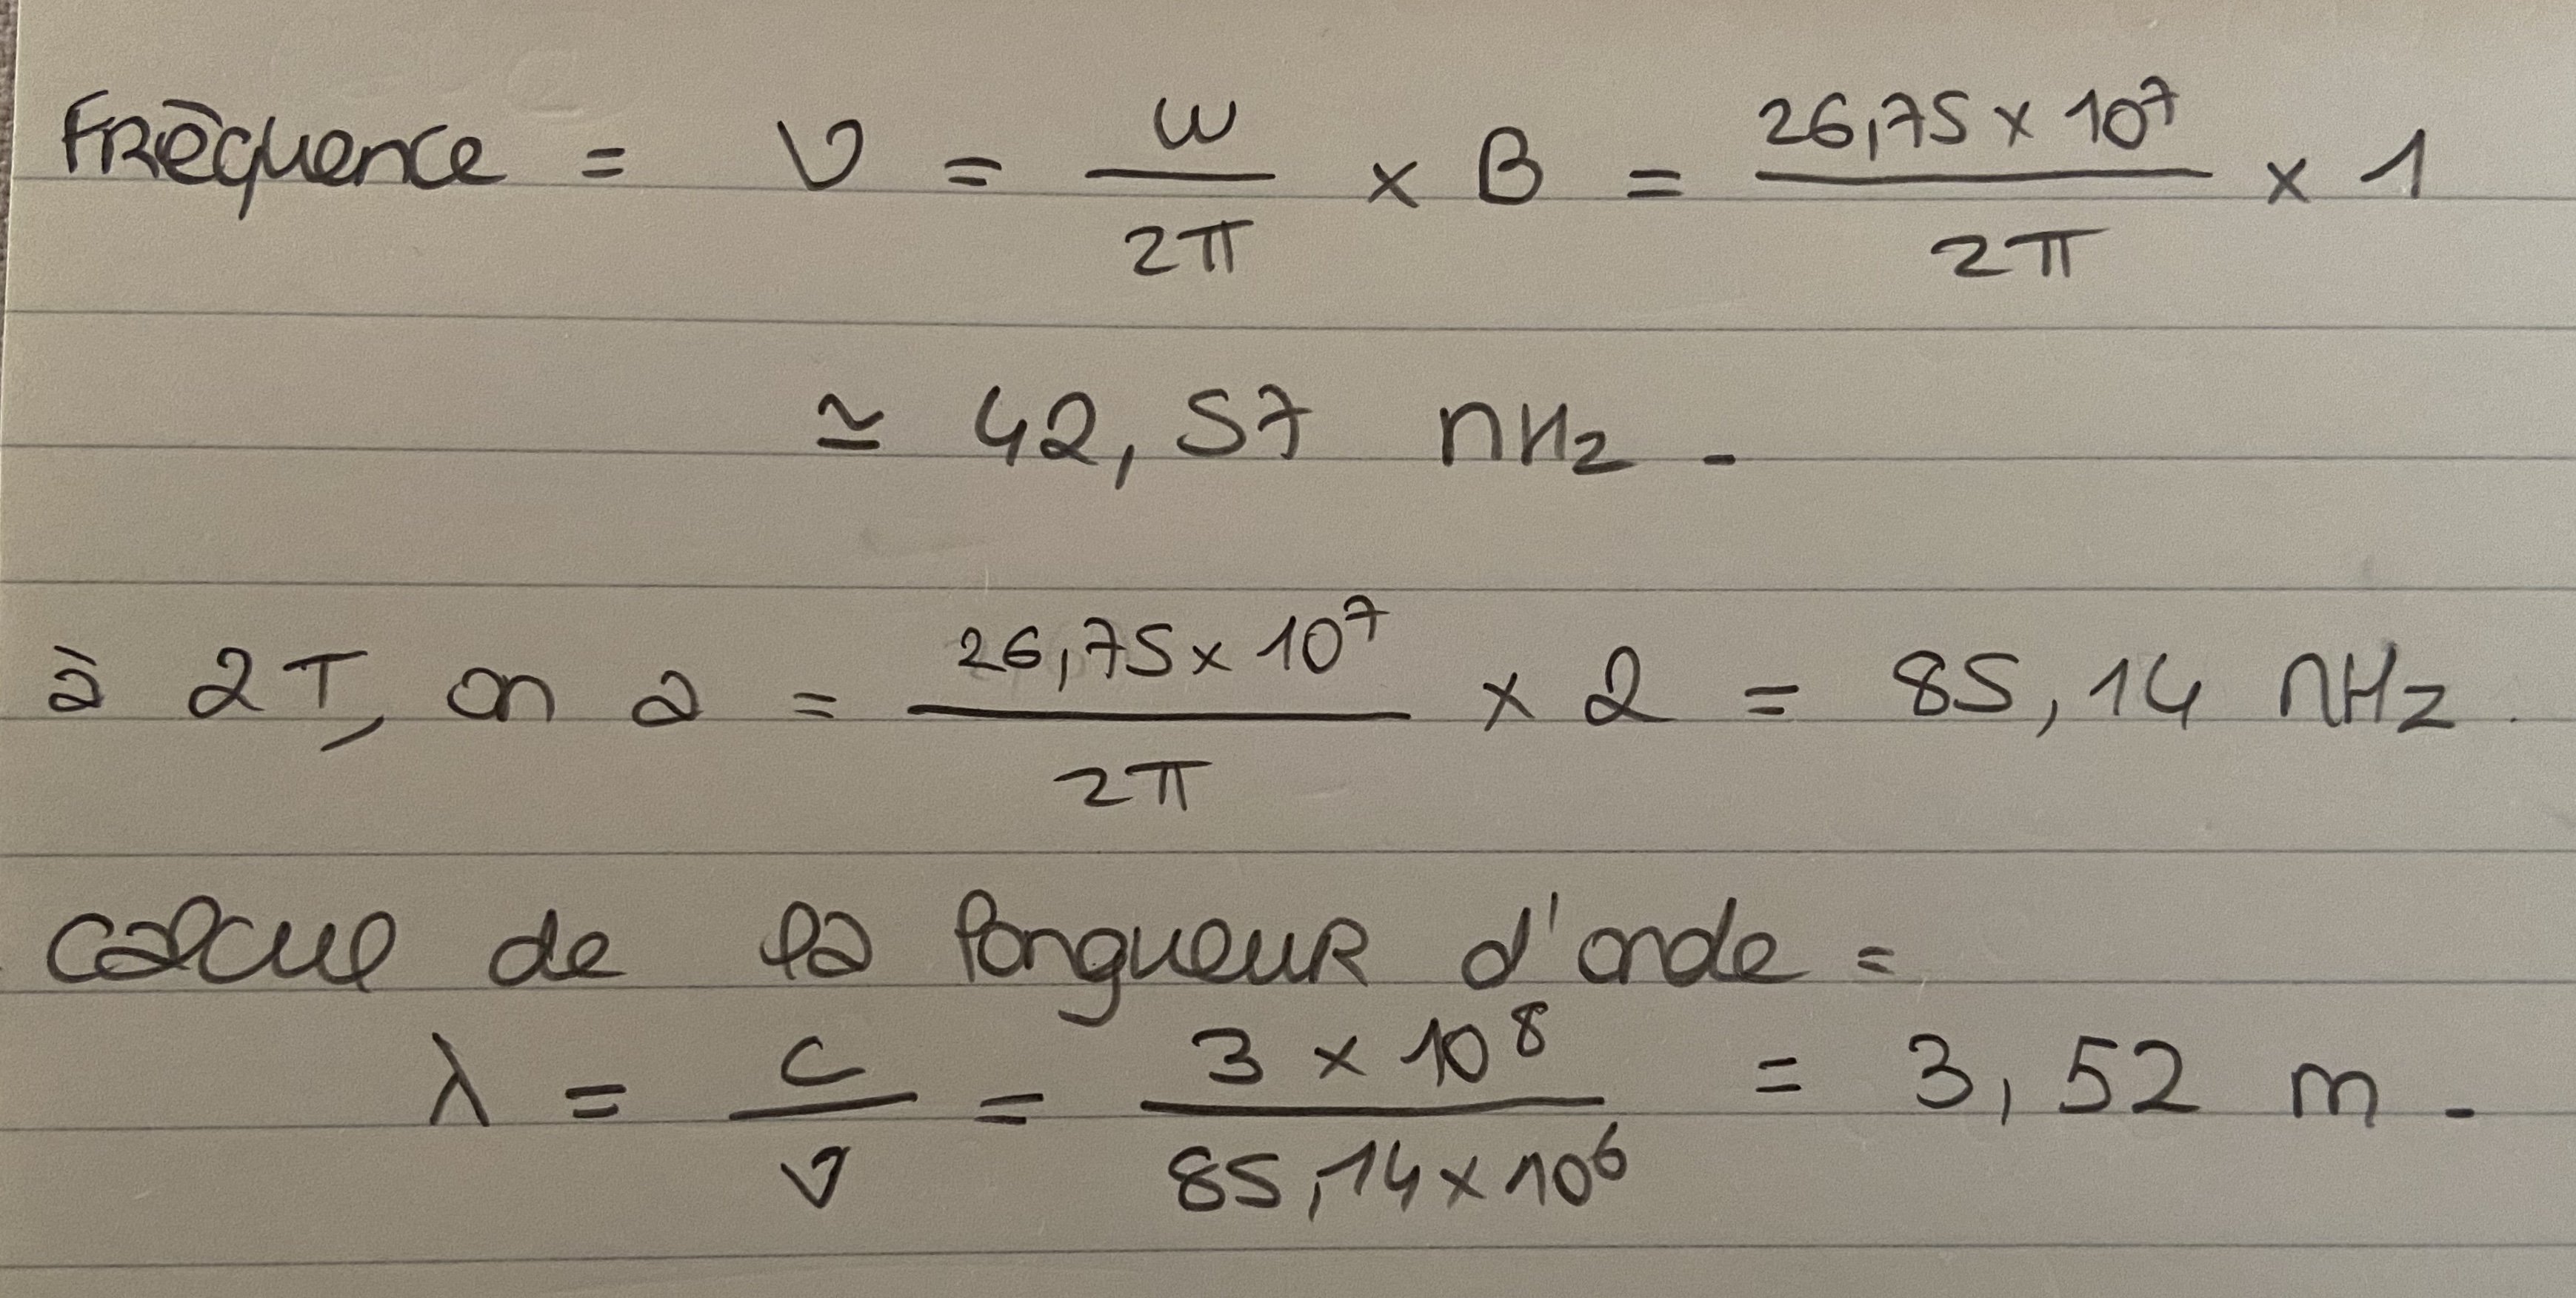 Fréquence = ν = ω / 2π × B = 26,75 × 10⁷ / 2π × 1
≃ 42,57 MHz -
à 2T, on a = 26,75 × 10⁷ / 2π × 2 = 85,14 MHz.
calcul de la longueur d'onde =
λ = c / ν = 3 × 10⁸ / 85,14 × 10⁶ = 3,52 m -